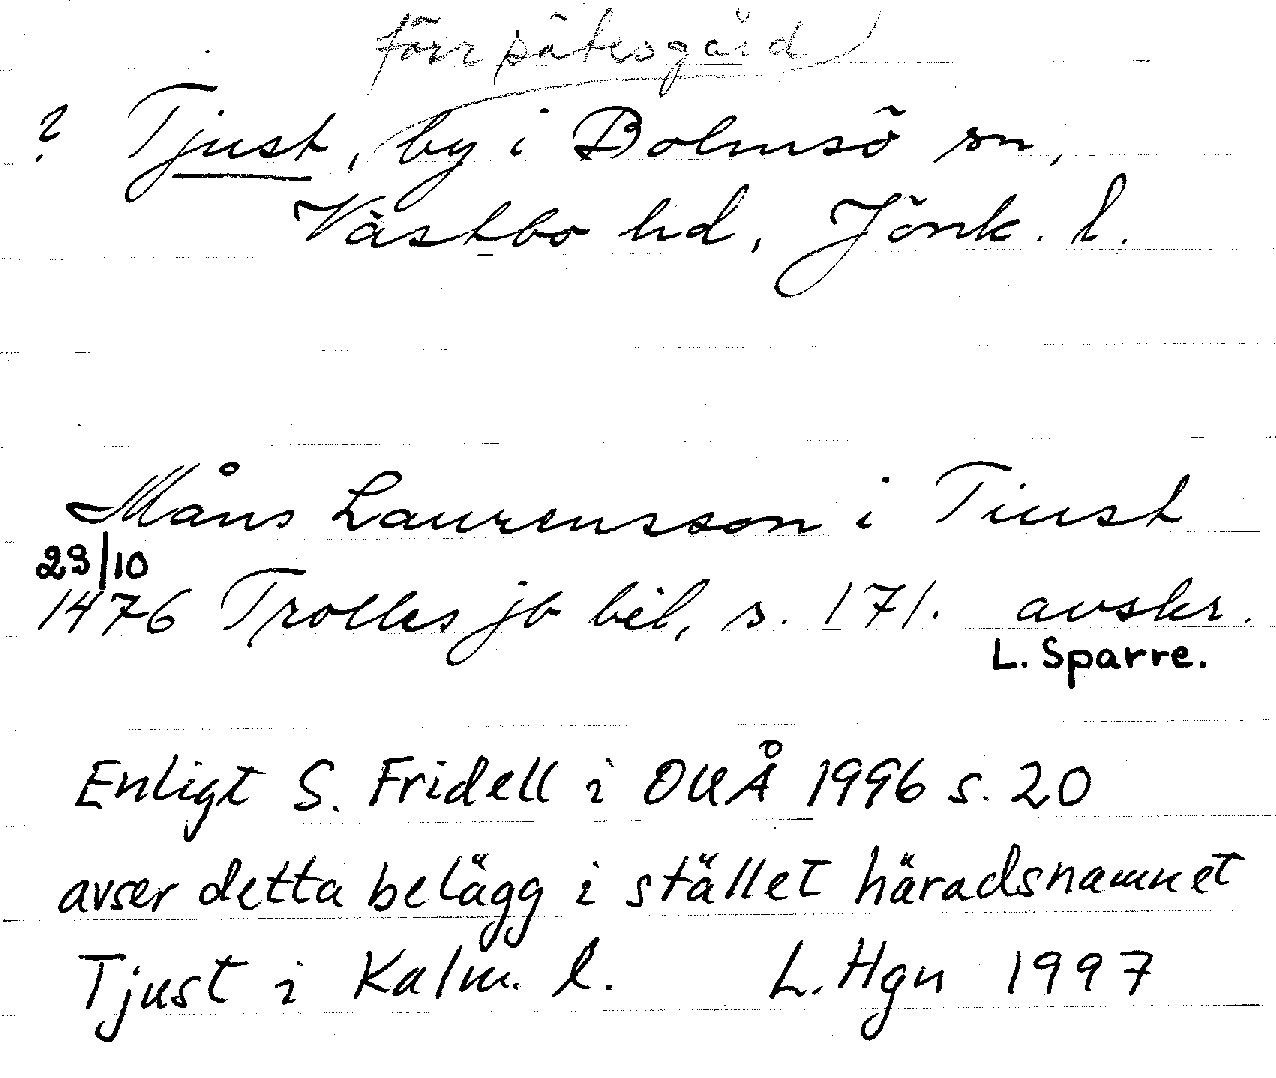 förr sätesgård
? Tjust, by i Bolmsö sn,
Västbo hd, Jönk. l.
Måns Laurensson i Tiust
29/10
1476 Trolles jb bil, s. 171. avskr.
L. Sparre.
Enligt S. Fridell i OUÅ 1996 s. 20
avser detta belägg i stället häradsnamnet
Tjust i Kalm. l. L. Hgn 1997